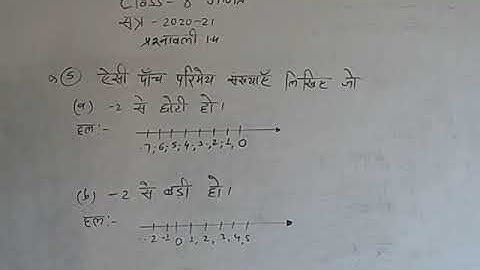 Class - 8 गणित
सत्र - 2020-21
प्रश्नावली 14
(5) ऐसी पाँच परिमेय संख्याएँ लिखिए जो
(a) -2 से छोटी हो।
हल:-
-7, -6, -5, -4, -3, -2, -1, 0
(b) -2 से बड़ी हो।
हल:-
-2 -1 0 1, 2, 3, 4, 5